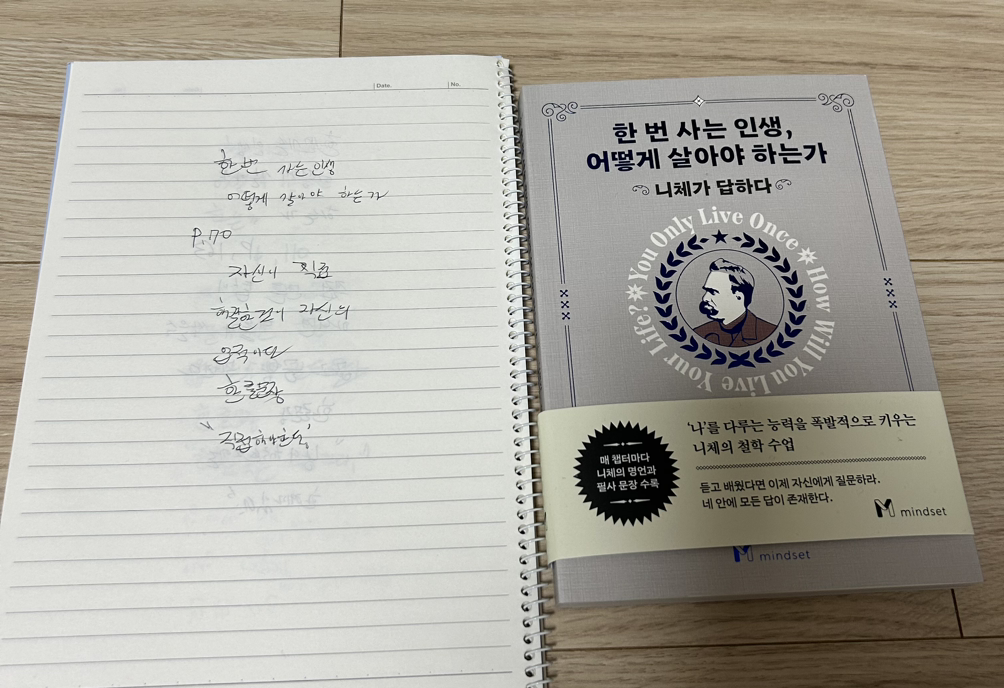 Date.
No.
한 번 사는 인생
어떻게 살아야 하는가
P.70
자신이 직접
한 줄 문장
한 번 사는 인생,
어떻게 살아야 하는가
니체가 답하다
You Only Live Once
How Will You Live Your Life?
'나'를 다루는 능력을 폭발적으로 키우는
니체의 철학 수업
매 챕터마다
니체의 명언과
필사 문장 수록
듣고 배웠다면 이제 자신에게 질문하라.
네 안에 모든 답이 존재한다.
mindset
mindset